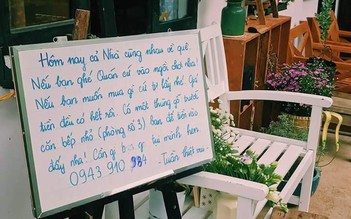 Hôm nay cả Nhà cùng nhau về quê.
Nếu bạn ghé Quán cứ vào ngồi chơi nha!
Nếu bạn muốn mua gì cứ tự lấy nhé! Giá
tiền đều có hết rồi. Có một thùng gỗ trước
căn bếp nhỏ (phòng số 3) bạn để tiền vào
đấy nha! Cần gì bạn gọi tụi mình hen
0943 910 984 - Tuấn